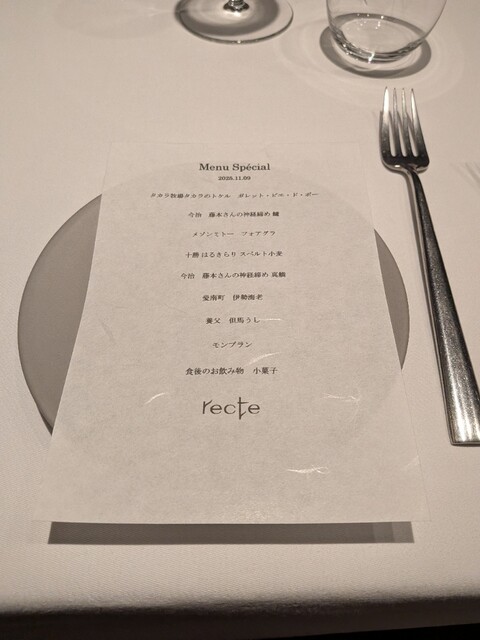 Menu Spécial
2020.11.09
タカラ牧場タカラのトケル ガレット・ピエ・ド・ポー
今治 藤本さんの神経締め 鱸
メゾンミトー フォアグラ
十勝 はるきらり スペルト小麦
今治 藤本さんの神経締め 真鯛
愛南町 伊勢海老
養父 但馬うし
モンブラン
食後のお飲み物 小菓子
recte